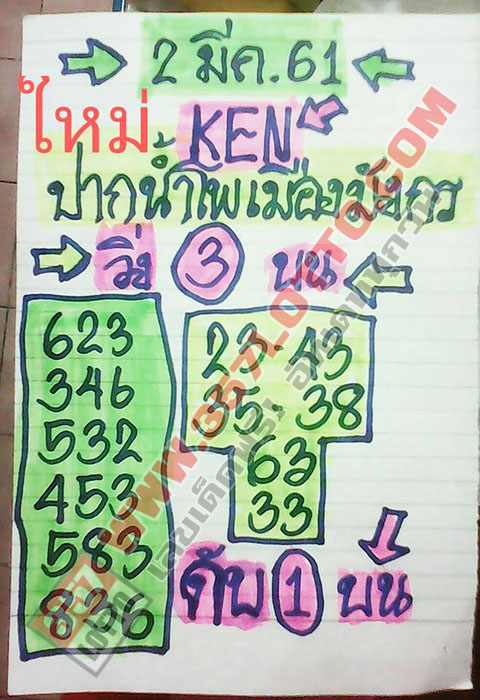 2 มีค.61
ใหม่ KEN
ปากน้ำโพเมืองมังกร
วิ่ง 3 บน
623
346
532
453
583
836
23. 43
35. 38
63
33
ดับ 1 บน
WWW.357LOTTO.COM